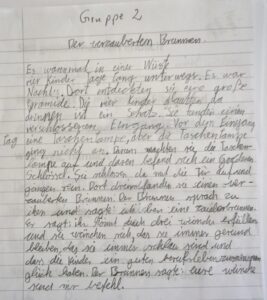 Gruppe 2
Der verzauberten Brunnen.
Es waren mal in einer Wüste
vier Kinder lage lang unterwegs. Es war
Nachts. Dort entdeckten sie eine große
Pyramide. Die vier Kinder das da
drinnen ist ein Schatz. Sie fanden einen
verschlossenen Eingang. Vor den Eingang
Tag eine Taschenlampe, aber die Taschenlampe
ging nicht an. Darum machten sie die Taschen
lampe auf und darin befand sich ein Goldenen
Schlüssel. Sie nahmen da mit die Tür auf und
gingen rein. Dort drinne fanden sie einen ver-
zauberten Brunnen. Der Brunnen sprach zu
ihnen und sagte: ich bin eine Zauberbrunnen.
Er sagt: ihr könnt euch drei wünsche erfüllen
und sie wünschen sich, das sie immer gesund
bleiben, das sie immer schlau sind und
das die Kinder ein guten beruf
glück haben. Der Brunnen sagte: eure wünsche
sind mir befehl.